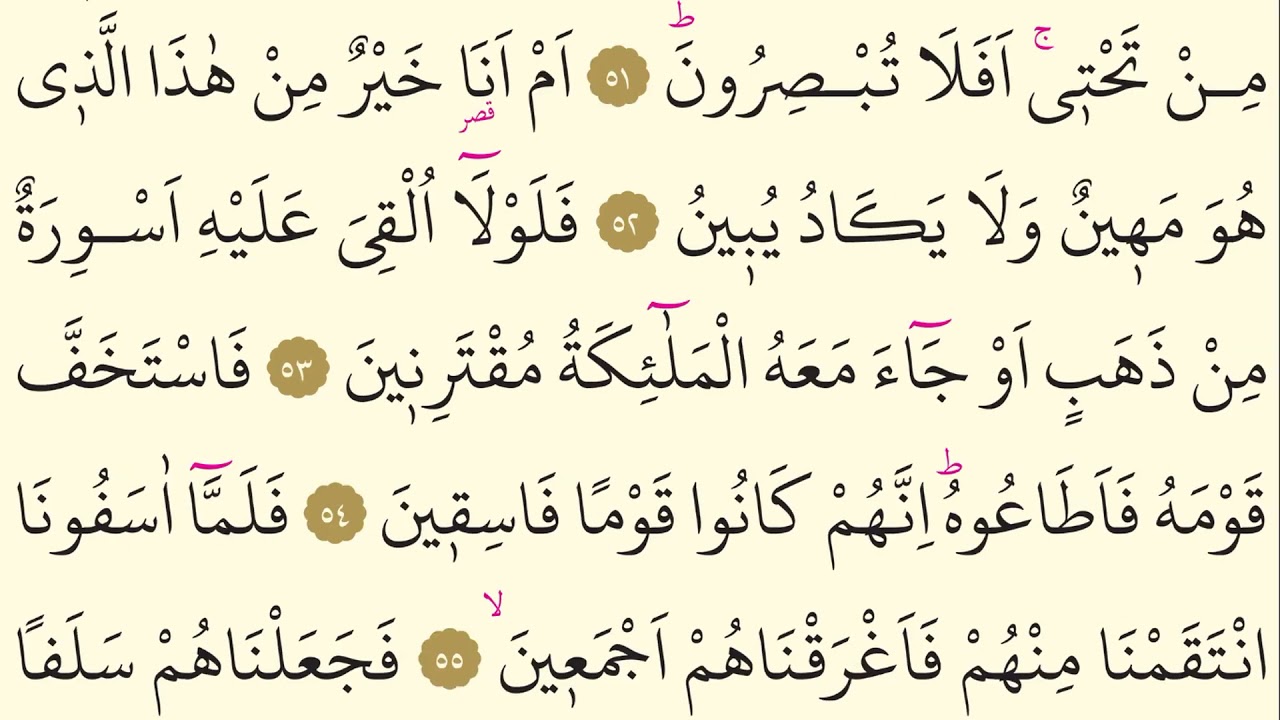 مِنْ تَحْتٖىۚ اَفَلَا تُبْصِرُونَۜ ﴿٥١﴾ اَمْ اَنَا۬ خَيْرٌ مِنْ هٰذَا الَّذٖى
هُوَ مَهٖينٌ وَلَا يَكَادُ يُبٖينُ ﴿٥٢﴾ فَلَوْلَٓا اُلْقِىَ عَلَيْهِ اَسْوِرَةٌ
مِنْ ذَهَبٍ اَوْ جَٓاءَ مَعَهُ الْمَلٰٓئِكَةُ مُقْتَرِنٖينَ ﴿٥٣﴾ فَاسْتَخَفَّ
قَوْمَهُ فَاَطَاعُوهُۜ اِنَّهُمْ كَانُوا قَوْمًا فَاسِقٖينَ ﴿٥٤﴾ فَلَمَّٓا اٰسَفُونَا
انْتَقَمْنَا مِنْهُمْ فَاَغْرَقْنَاهُمْ اَجْمَعٖينَۙ ﴿٥٥﴾ فَجَعَلْنَاهُمْ سَلَفًا